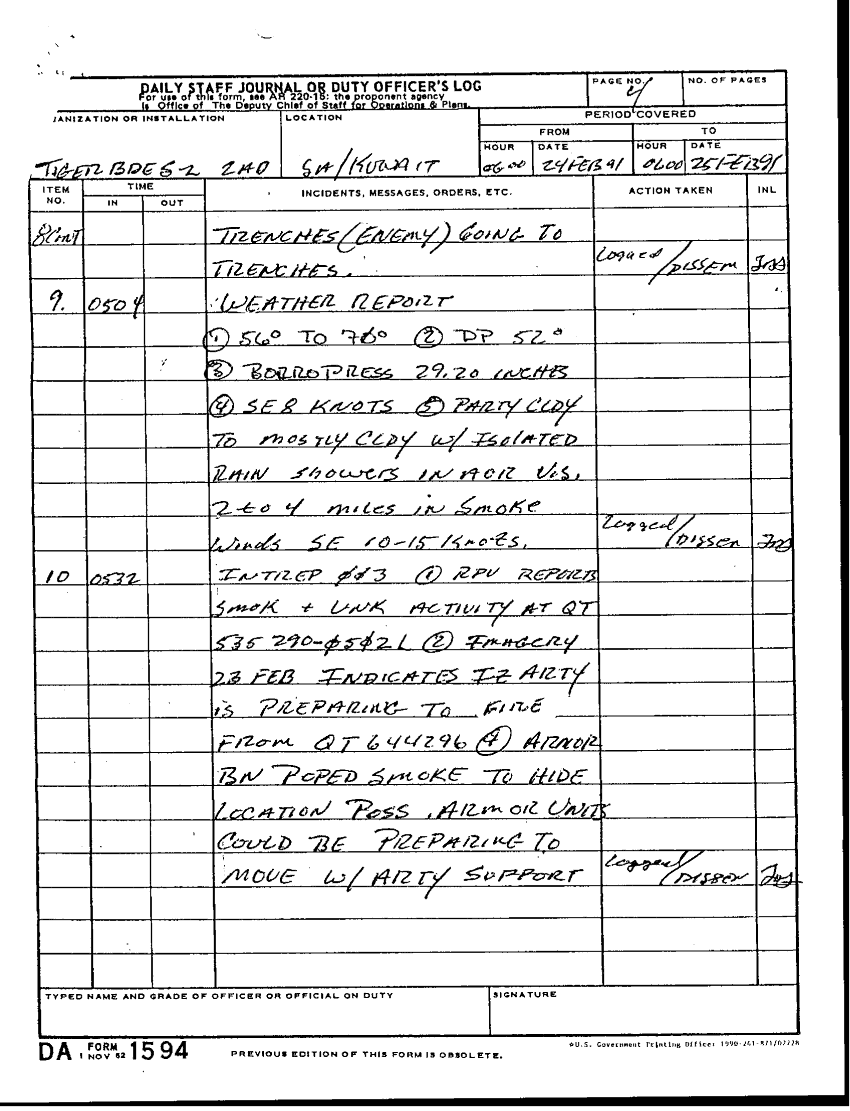 DAILY STAFF JOURNAL OR DUTY OFFICER'S LOG
For use of this form, see AR 220-15: the proponent agency
is Office of The Deputy Chief of Staff for Operations & Plans.
PAGE NO. 4
NO. OF PAGES
JANIZATION OR INSTALLATION
LOCATION
PERIOD COVERED
FROM
TO
HOUR
DATE
HOUR
DATE
TIGER BDE S-2 2AD
SA/KUWAIT
0600
24 FEB 91
0600
25 FEB 91
ITEM NO.
TIME
IN
OUT
INCIDENTS, MESSAGES, ORDERS, ETC.
ACTION TAKEN
INL
8Cont TRENCHES (ENEMY) GOING TO
TRENCHES. Logged/DISSEM
9. 0504 WEATHER REPORT
① 56° TO 70° ② DP 52°
③ BORROPRESS 29.20 INCHES
④ SE 8 KNOTS ⑤ PARTY CLDY
TO MOSTLY CLDY W/ ISOLATED
RAIN SHOWERS IN AOR VIS,
2 to 4 miles in Smoke
Winds SE 10-15 Knots. Logged/DISSEM
10 0532 INTREP 003 ① RPV REPORTS
SMOK + UNK ACTIVITY AT QT
535 290-0502L ② IMAGERY
23 FEB INDICATES IZ ARTY
is PREPARING TO FIRE
FROM QT 644296 ④ ARMOR
BN POPED SMOKE TO HIDE
LOCATION POSS. ARMOR UNITS
COULD BE PREPARING TO
MOVE W/ ARTY SUPPORT Logged/DISSEM
TYPED NAME AND GRADE OF OFFICER OR OFFICIAL ON DUTY
SIGNATURE
DA FORM 1 NOV 62 1594
PREVIOUS EDITION OF THIS FORM IS OBSOLETE.
☆U.S. Government Printing Office: 1990-261-871/02228